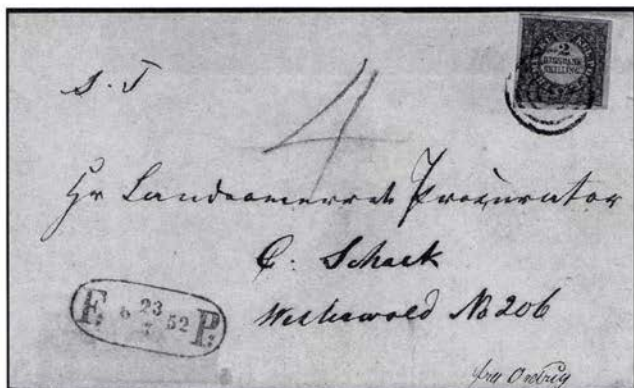 2
RIGSBANK
SKILLING
S. T
4
Hr Landsoverrets Procurator
C. Schack
Westerwold No 206
F. 6 23/7 52 P.
fra